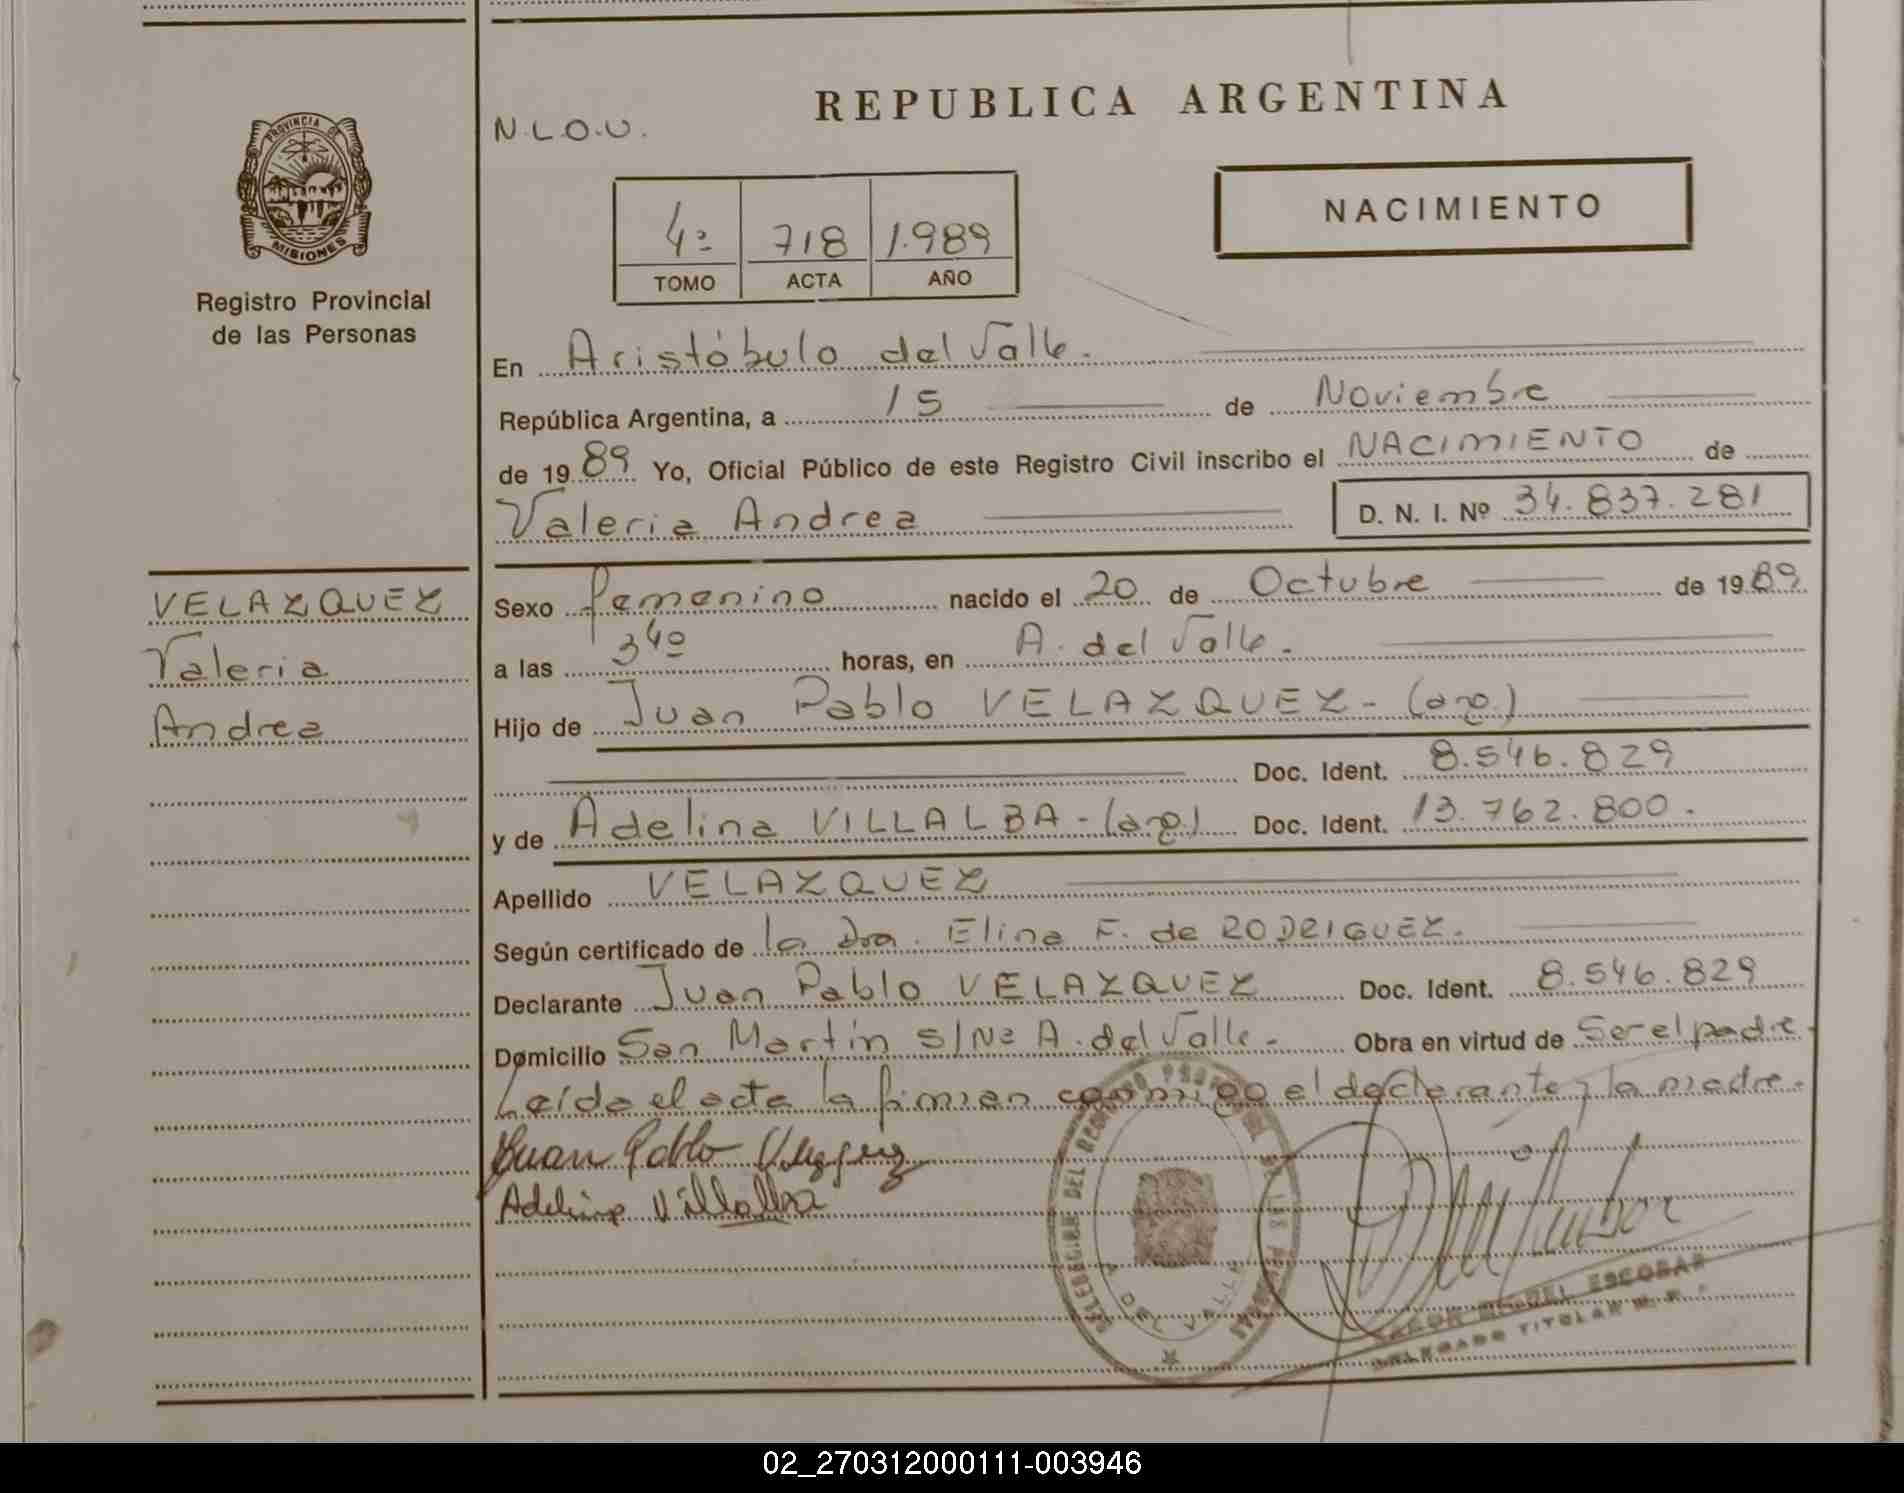 PROVINCIA DE
MISIONES
Registro Provincial
de las Personas
VELAZQUEZ
Valeria
Andrea
N.L.O.U.
REPUBLICA ARGENTINA
4º 718 1.989
TOMO ACTA AÑO
NACIMIENTO
En Aristóbulo del Valle.
República Argentina, a 15 de Noviembre
de 1989 Yo, Oficial Público de este Registro Civil inscribo el NACIMIENTO de
Valeria Andrea D. N. I. Nº 34.837.281
Sexo femenino nacido el 20 de Octubre de 1989
a las 3⁴⁰ horas, en A. del Valle.
Hijo de Juan Pablo VELAZQUEZ - (arg.)
Doc. Ident. 8.546.829
y de Adelina VILLALBA - (arg.) Doc. Ident. 13.762.800.
Apellido VELAZQUEZ
Según certificado de la Dra. Elina F. de RODRIGUEZ.
Declarante Juan Pablo VELAZQUEZ Doc. Ident. 8.546.829
Domicilio San Martín S/Nº A. del Valle - Obra en virtud de Ser el padre.
Leída el acta la firman conmigo el declarante y la madre.
Juan Pablo Velazquez
Adelina Villalba
DELEGACION DEL REGISTRO PROVINCIAL DE LAS PERSONAS
A. DEL VALLE
MIGUEL ESCOBAR
DELEGADO TITULAR
02_270312000111-003946